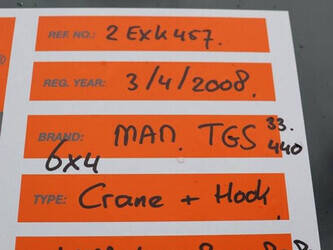 REF. NO.: 2 EXK457.
REG. YEAR: 3/4/2008.
BRAND: MAN. TGS 33.
440
6x4
TYPE: Crane + Hook,